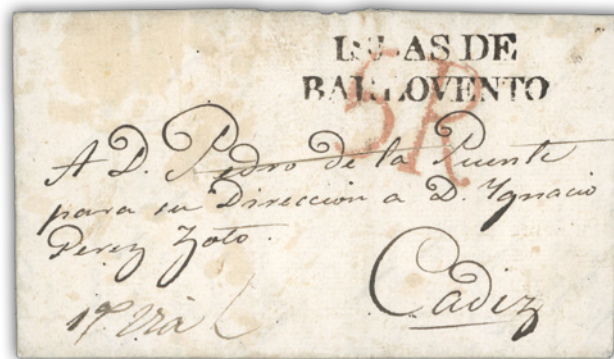 ISLAS DE
BARLOVENTO
5R
A D. Pedro de la Puente
para su Direccion a D. Ygnacio
Perez Zoto.
Cadiz
1ª Via